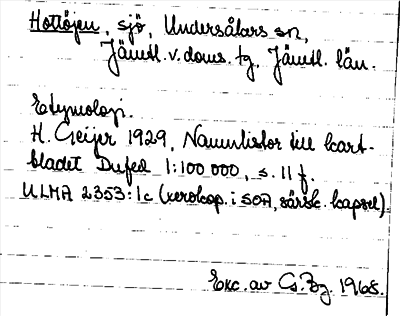 Hottöjen, sjö, Undersåkers sn,
Jämtl. v. doms. tg, Jämtl. län.
Etymologi.
H. Geijer 1929, Namnlistor till kart-
bladet Dufed 1:100 000, s. 11 f.
ULMA 2353:1c (xerokop. i SOA, särsk. kapsel).
Exc. av Cs. Bg. 1968.